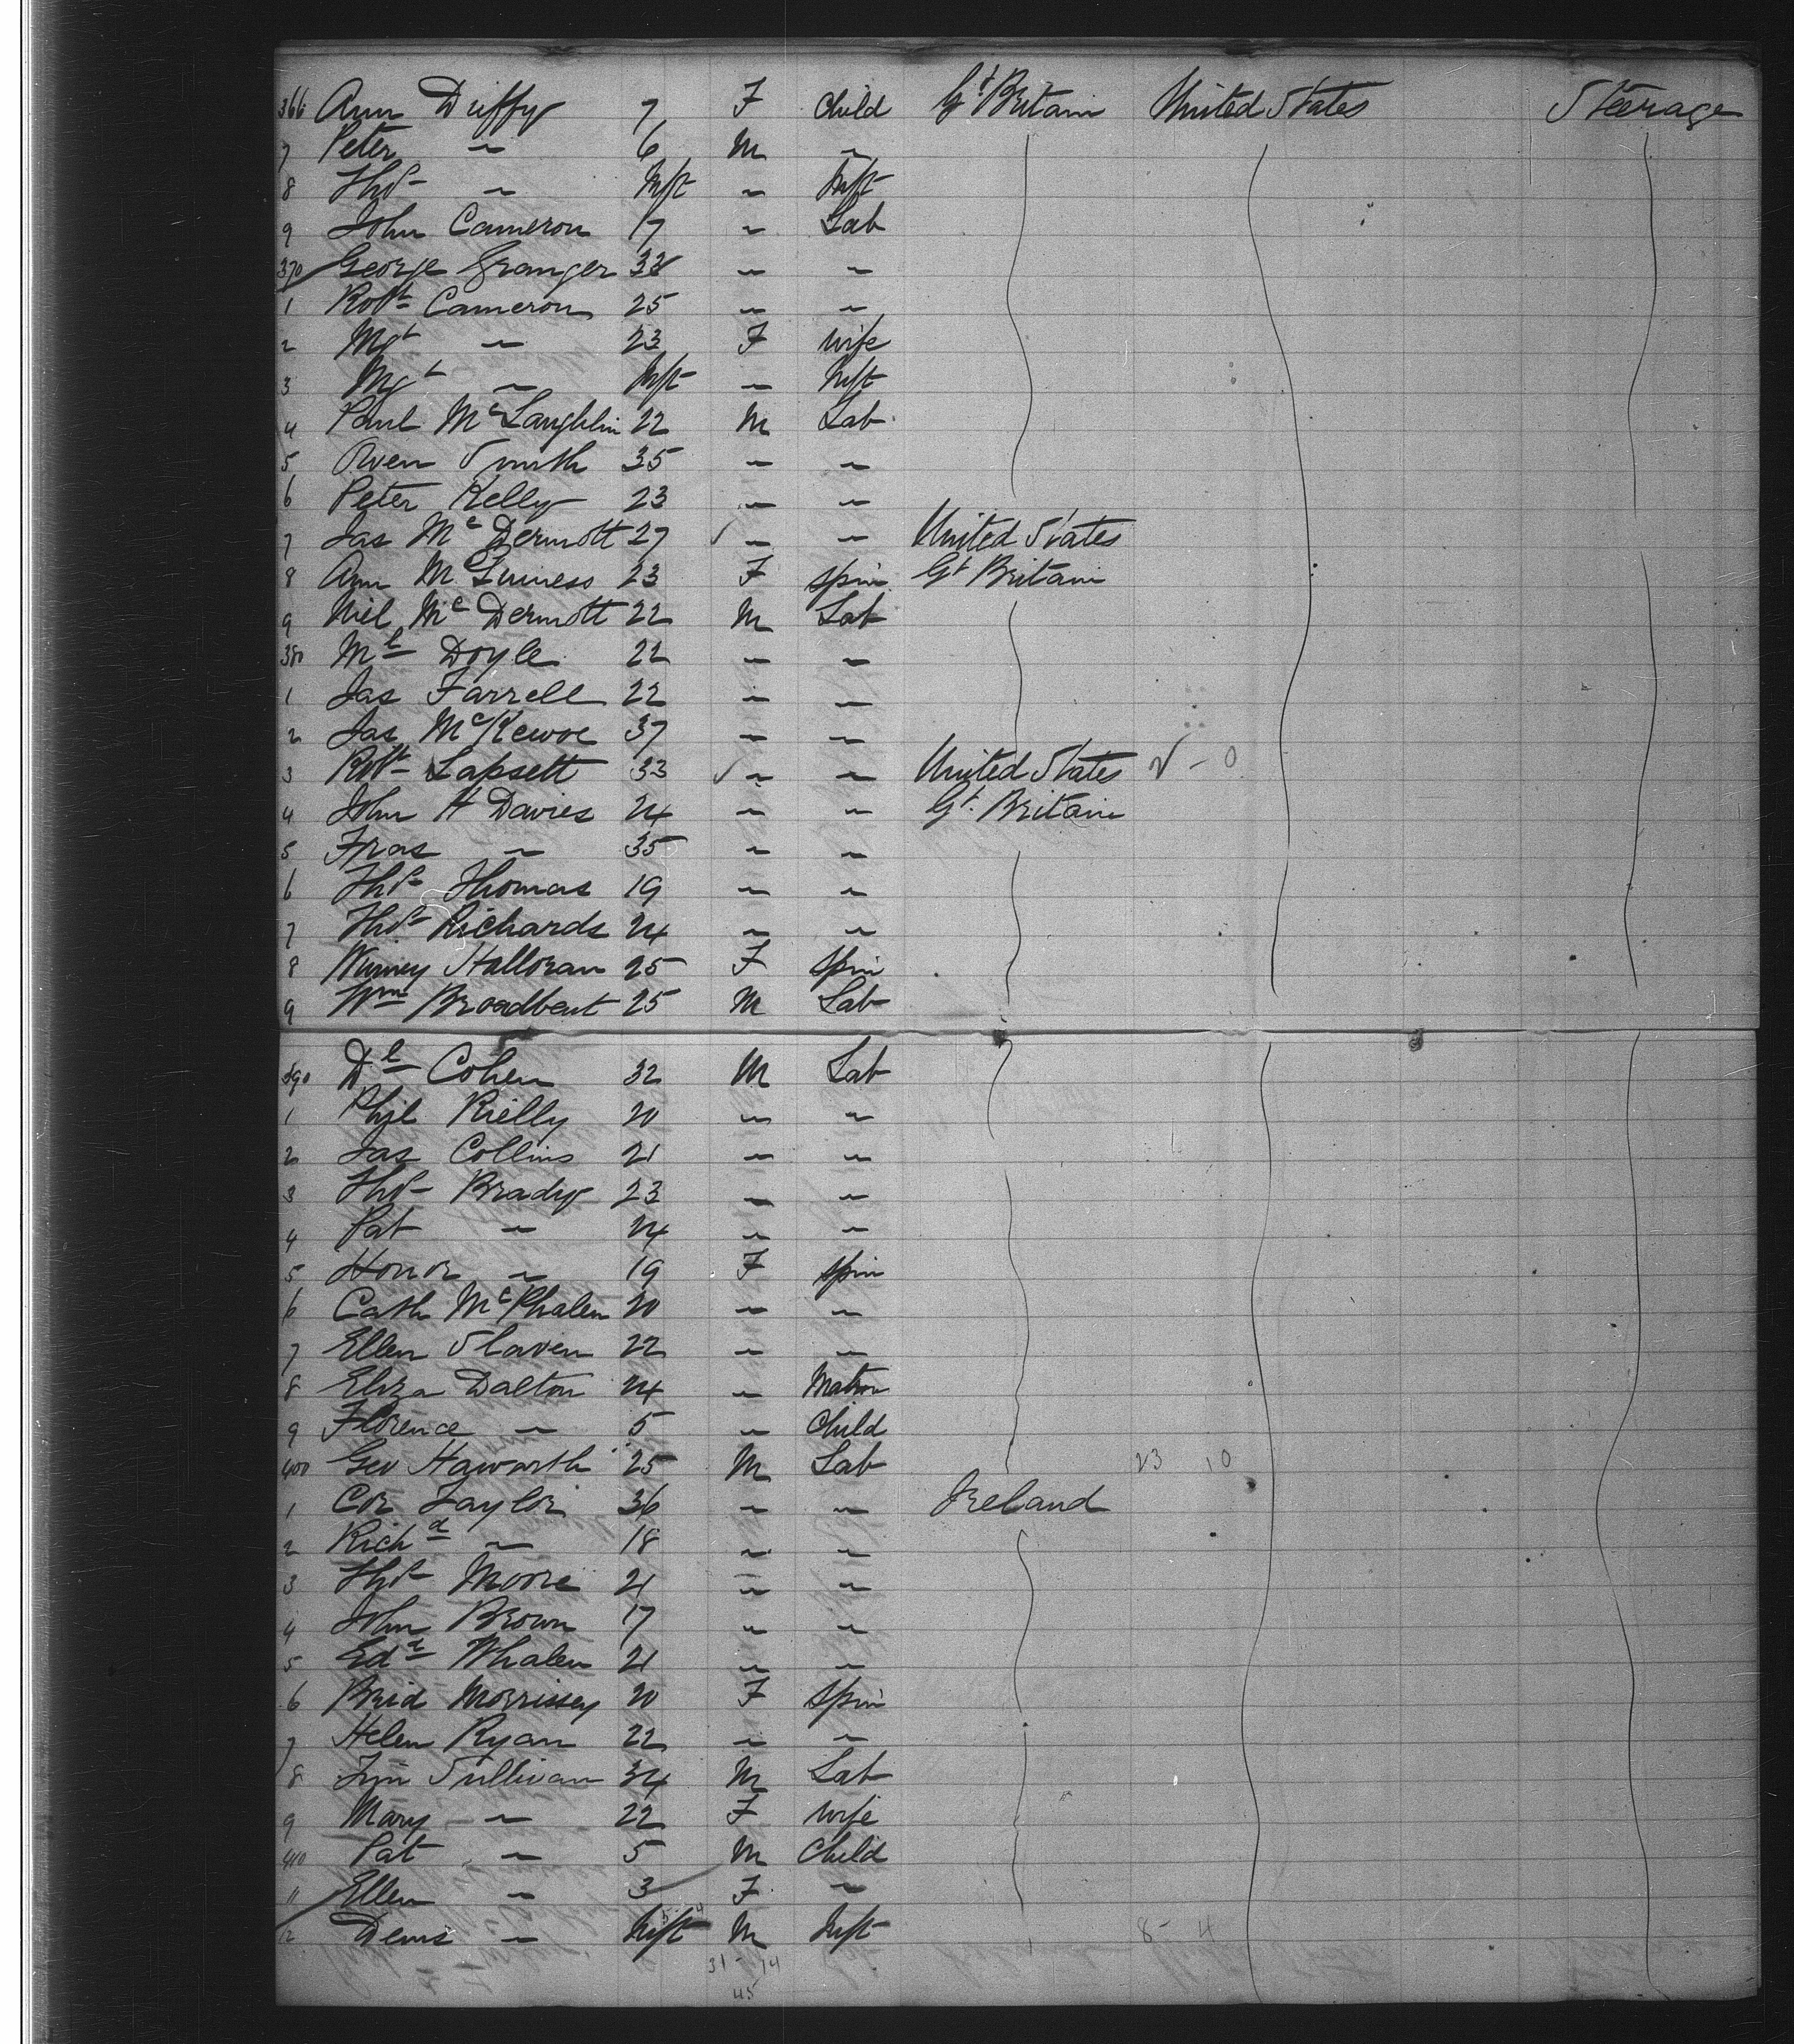 366 Ann Duffy 7 F Child Gt Britain United States Steerage
7 Peter " 6 M "
8 Thos " Inft " Inft
9 John Cameron 17 " Lab
370 George Granger 33 " "
1 Robt Cameron 25 " "
2 Mgt " 23 F wife
3 Mgt " Inft " Inft
4 Paul McLaughlin 22 M Lab
5 Owen Smith 35 " "
6 Peter Kelly 23 " "
7 Jas McDermott 27 " " United States
8 Ann McGuiness 23 F spin Gt Britain
9 Niel McDermott 22 M Lab
380 Ml Doyle 22 " "
1 Jas Farrell 22 " "
2 Jas McKewoe 37 " "
3 Robt Lapsett 33 " " United States
4 John H Davies 24 " " Gt Britain
5 Fras " 35 " "
6 Thos Thomas 19 " "
7 Thos Richards 24 " "
8 Winney Halloran 25 F spin
9 Wm Broadbent 25 M Lab
390 Dl Cohen 32 M Lab
1 Phil Rielly 20 " "
2 Jas Collins 21 " "
3 Thos Brady 23 " "
4 Pat " 24 " "
5 Honor " 19 F spin
6 Cath McPhalen 20 " "
7 Ellen Slaven 22 " "
8 Eliza Dalton 24 " Matron
9 Florence " 5 " Child
400 Geo Haworth 25 M Lab 23 10
1 Cor Taylor 36 " " Ireland
2 Richd " 18 " "
3 Thos Moore 21 " "
4 John Brown 17 " "
5 Edd Whalen 21 " "
6 Brid Morrissey 20 F spin
7 Helen Ryan 22 " "
8 Tim Sullivan 34 M Lab
9 Mary " 22 F wife
410 Pat " 5 M Child
11 Ellen " 3 F "
2 Denis " Inft M Inft 8 - 4
31 - 14
45